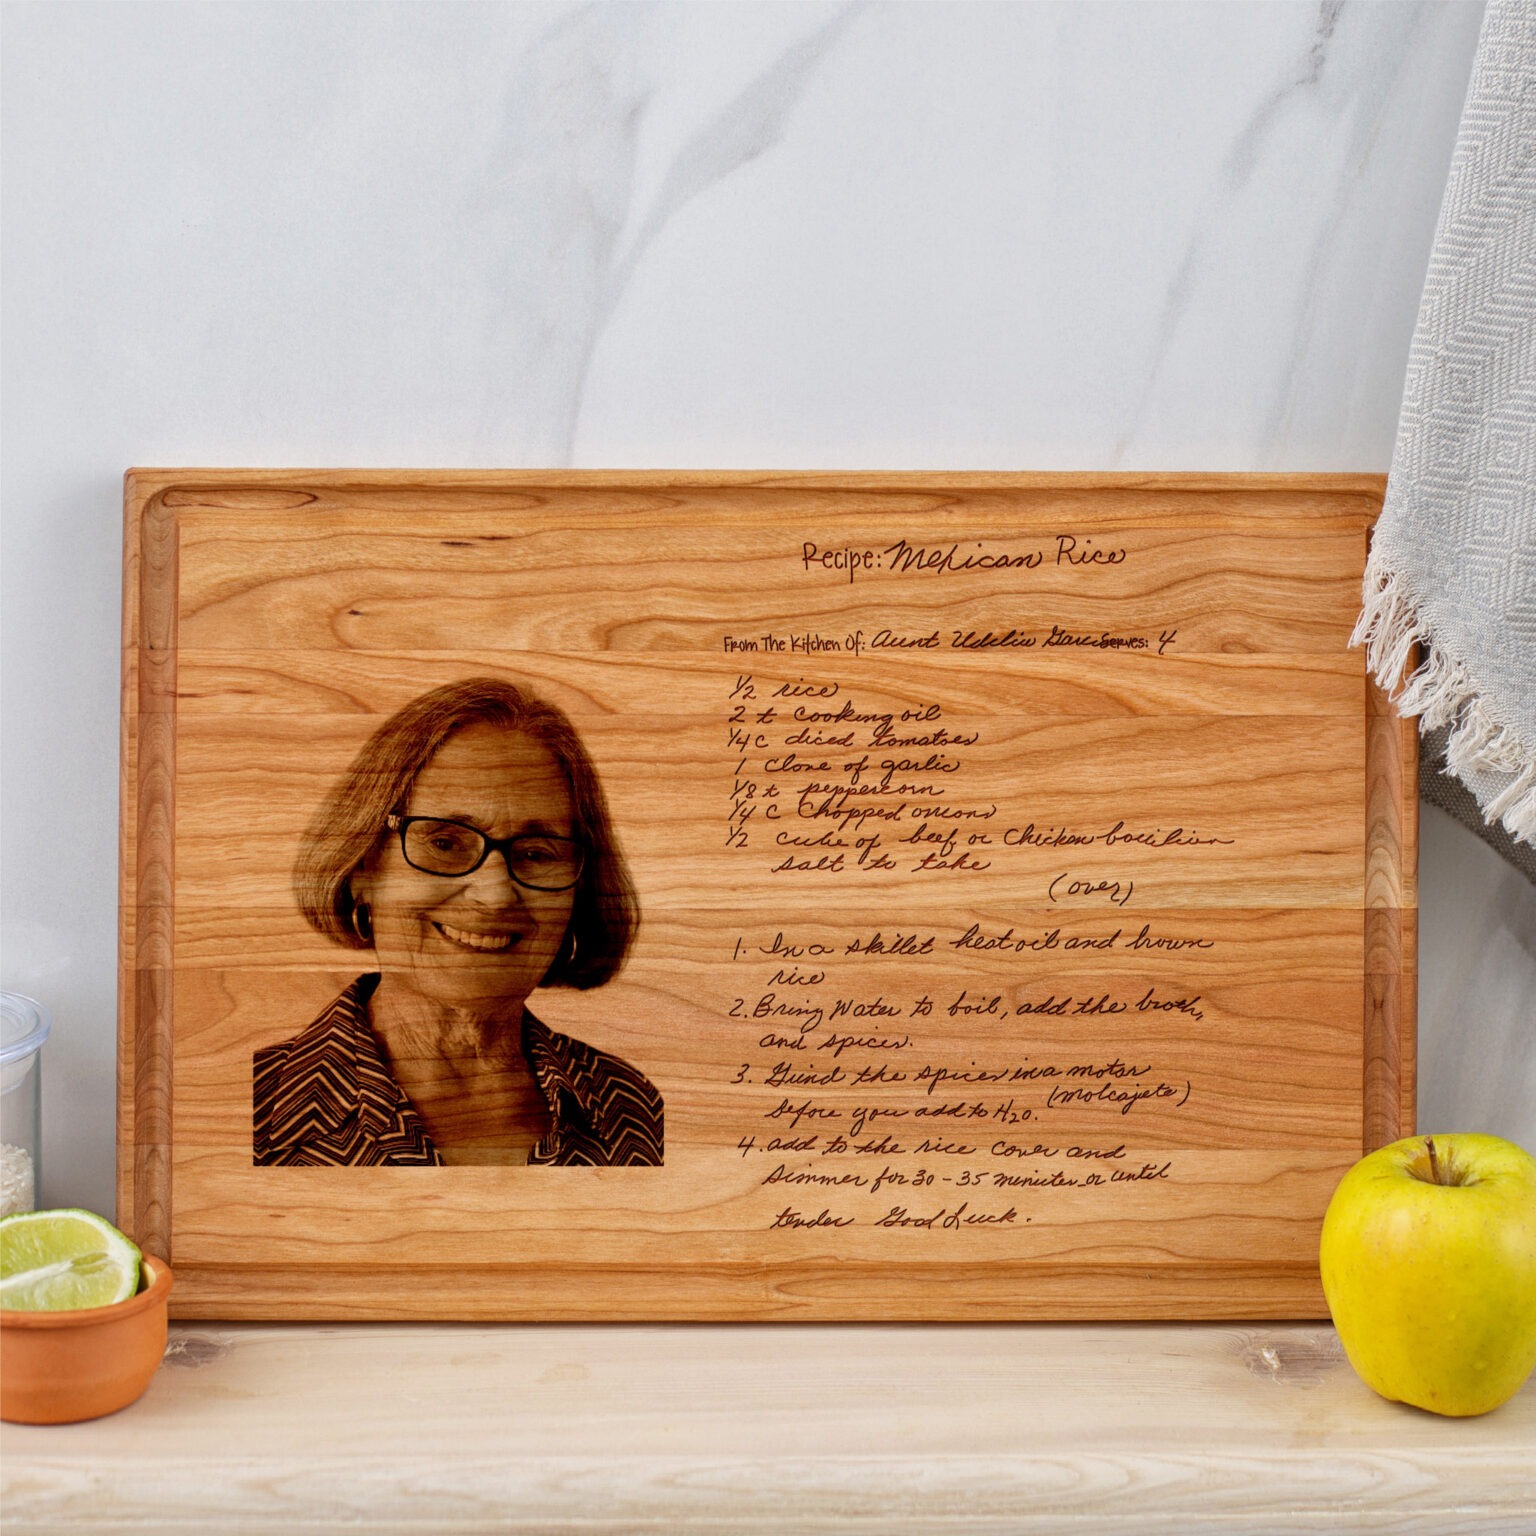 Recipe: Mexican Rice
From The Kitchen Of: Aunt Udelia Serves: 4
1/2 rice
2 t cooking oil
1/4 c diced tomatoes
1 clove of garlic
1/8 t peppercorn
1/4 C Chopped onions
1/2 cube of beef or Chicken
salt to take
(over)
1. In a skillet heat oil and brown
rice
2. Bring Water to boil, add the broth,
and spices.
3. Grind the spices in a motar
(molcajete)
before you add to H2O.
4. add to the rice cover and
simmer for 30-35 minutes or until
tender Good Luck.